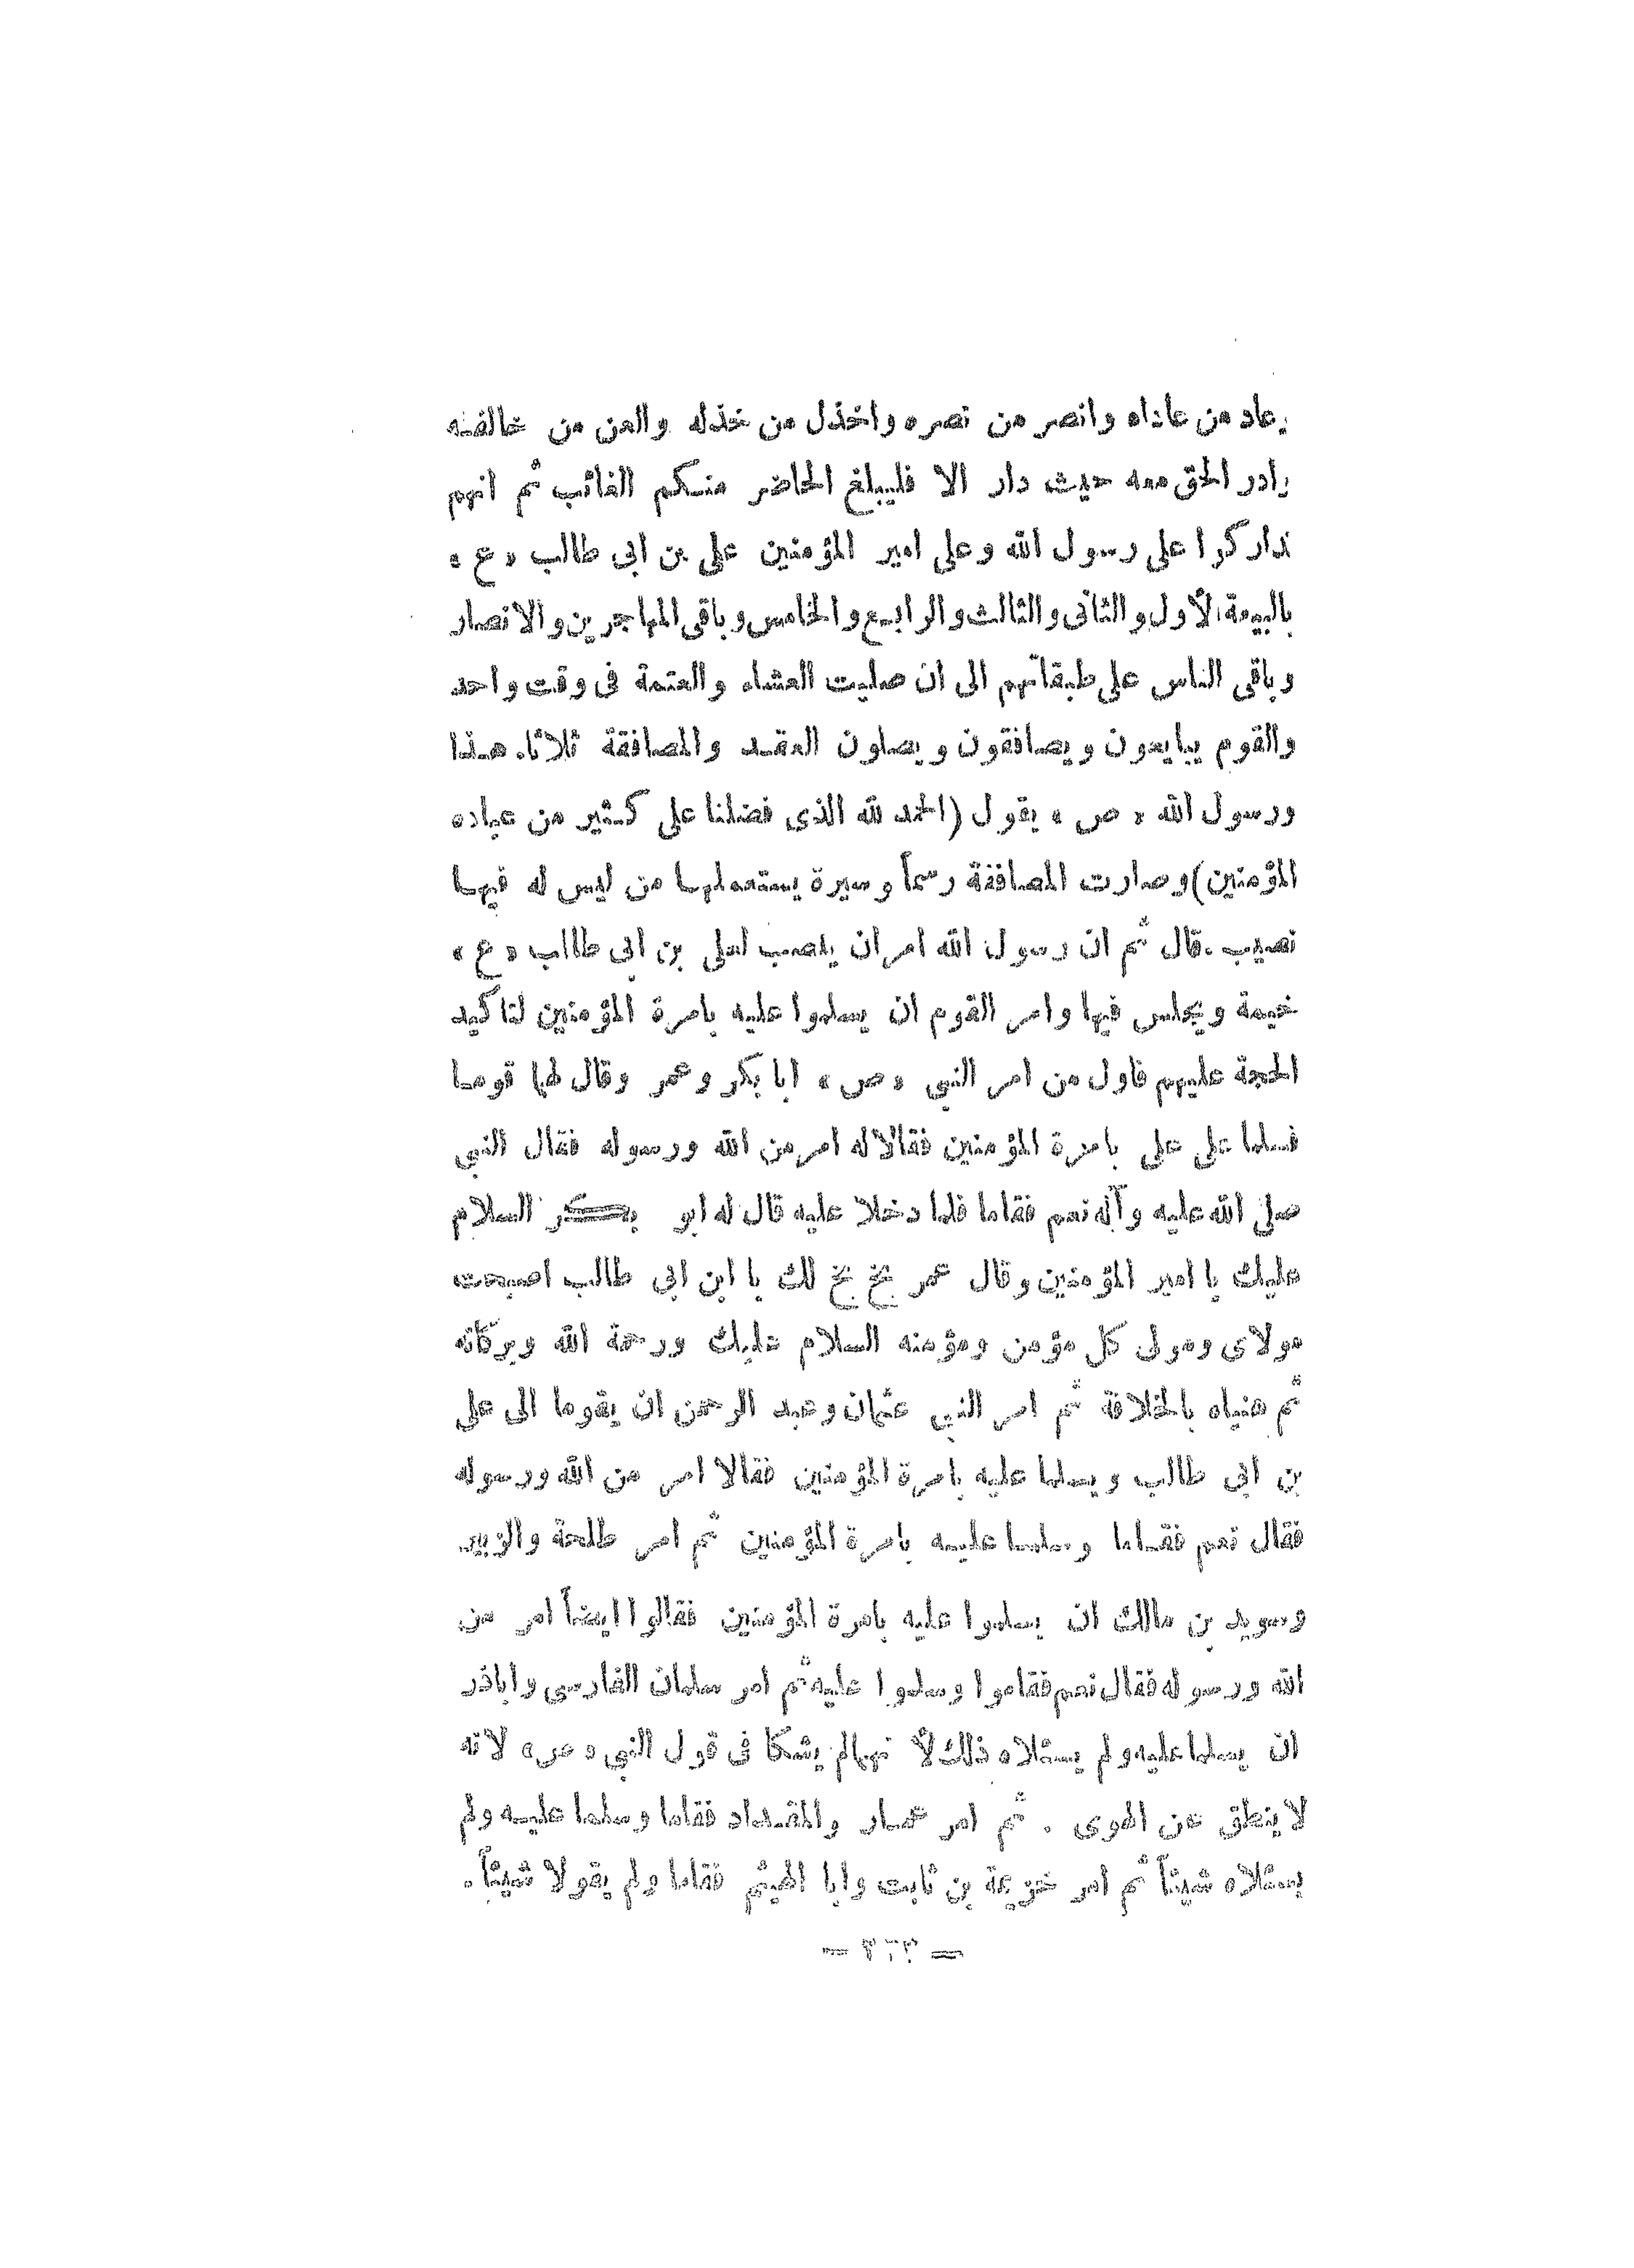 وعاد من عاداه وانصر من نصره واخذل من خذله والعن من خالفه
وادر الحق معه حيث دار الا فليبلغ الحاضر منكم الغائب ثم انهم
تداركوا على رسول الله وعلى امير المؤمنين على بن ابى طالب «ع»
بالبيعة الأول والثانى والثالث والرابع والخامس وباقى المهاجرين والانصار
وباقى الناس على طبقاتهم الى ان صليت العشاء والعتمة فى وقت واحد
والقوم يبايعون ويصافقون ويصلون العقد والمصافقة ثلاثا. هذا
ورسول الله «ص» يقول (الحمد لله الذى فضلنا على كثير من عباده
المؤمنين) وصارت المصافقة رسماً وسيرة يستعملها من ليس له فيها
نصيب. قال ثم ان رسول الله امر ان ينصب لعلى بن ابى طالب «ع»
خيمة ويجلس فيها وامر القوم ان يسلموا عليه بامرة المؤمنين لتاكيد
الحجة عليهم فاول من امر النبي «ص» ابا بكر وعمر وقال لهما قوما
فسلما على على بامرة المؤمنين فقالا له امر من الله ورسوله فقال النبي
صلى الله عليه وآله نعم فقاما فلما دخلا عليه قال له ابو بكر السلام
عليك يا امير المؤمنين وقال عمر بخ بخ لك يا ابن ابى طالب اصبحت
مولاى ومولى كل مؤمن ومؤمنه السلام عليك ورحمة الله وبركاته
ثم هنياه بالخلافة ثم امر النبي عثمان وعبد الرحمن ان يقوما الى على
بن ابى طالب ويسلما عليه بامرة المؤمنين فقالا امر من الله ورسوله
فقال نعم فقاما وسلما عليه بامرة المؤمنين ثم امر طلحة والزبير
وسويد بن مالك ان يسلموا عليه بامرة المؤمنين فقالوا ايضاً امر من
الله ورسوله فقال نعم فقاموا وسلموا عليه ثم امر سلمان الفارسى واباذر
ان يسلما عليه ولم يسئلاه ذلك لأنهما لم يشكا فى قول النبي «ص» لانه
لا ينطق عن الهوى . ثم امر عمار والمقداد فقاما وسلما عليه ولم
يسئلاه شيئاً ثم امر خزيمة بن ثابت وابا الهيثم فقاما ولم يقولا شيئاً.